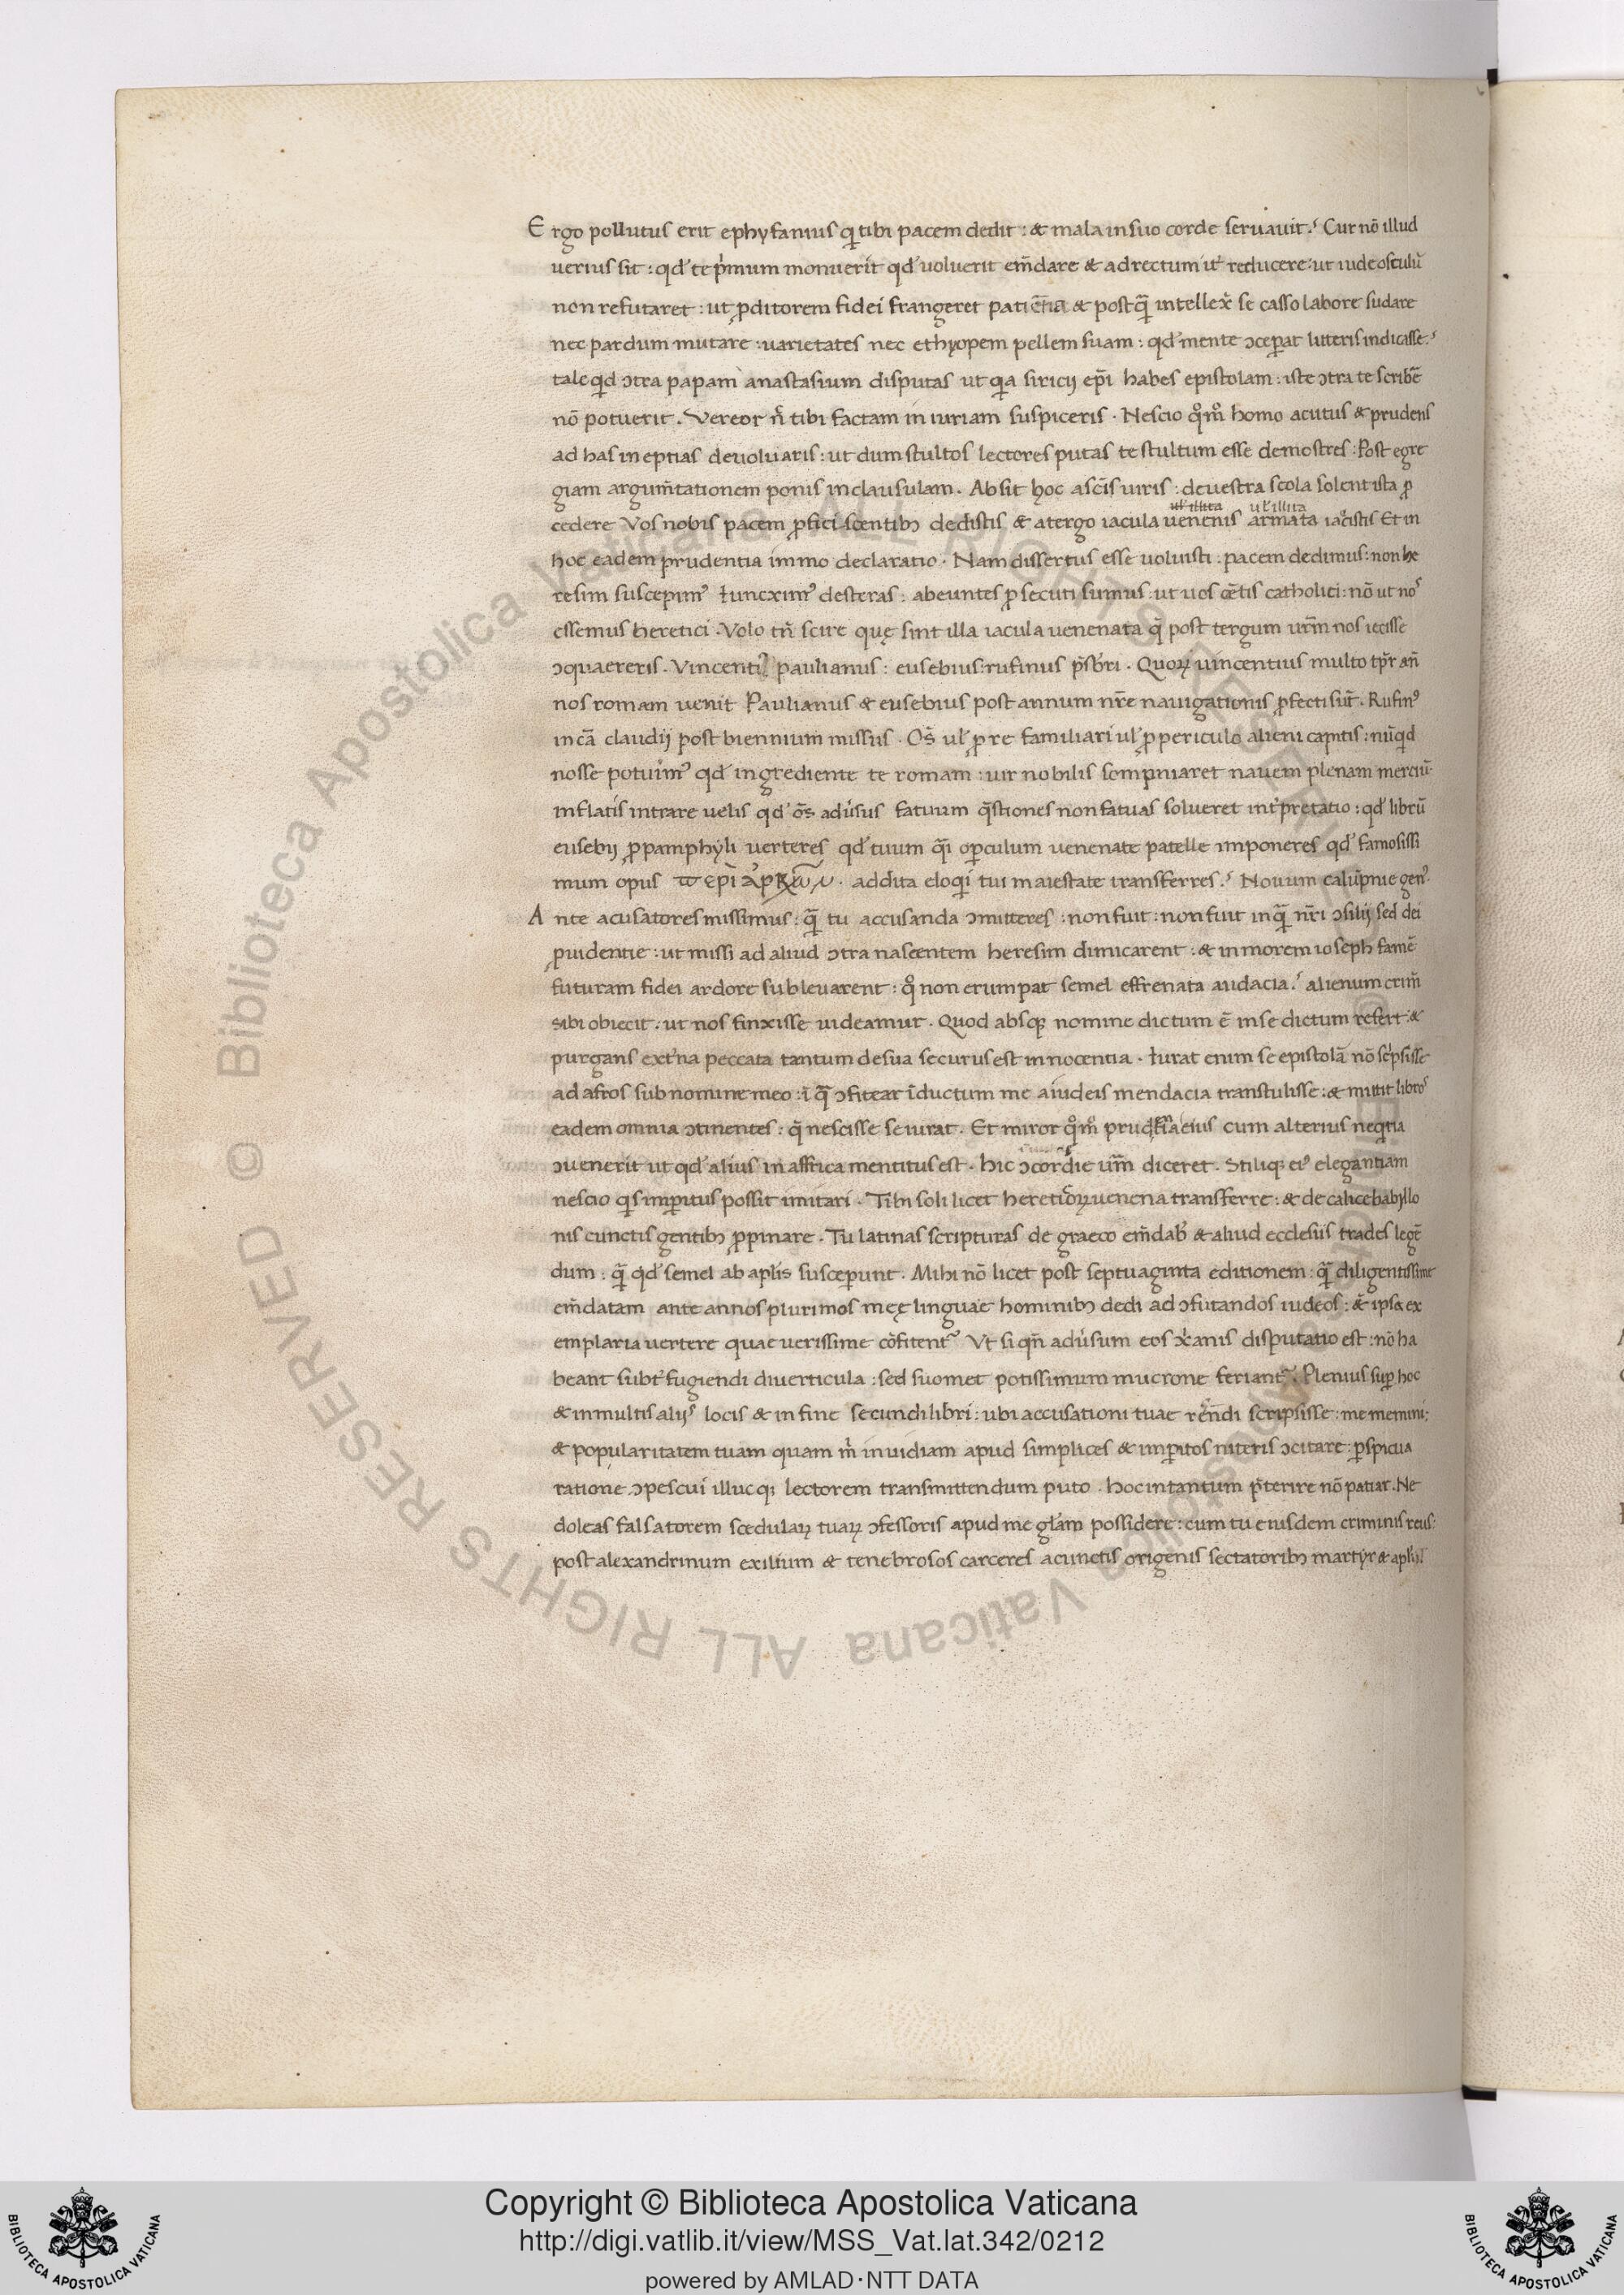 Ergo pollutus erit ephyfanius q̇ tibi pacem dedit : & mala in suo corde servavit.ˢ Cur nō illud
verius sit : qd' te p̓mum monuerit qd' voluerit em̄dare & ad rectum it̓ reducere : ut iude osculū
non refutaret : ut p̱ditorem fidei frangeret patiēn̄tia & postq̄ intellex̓ se casso labore sudare
nec pardum mutare : varietates nec ethyopem pellem suam : qd' mente ↄcep̱at litteris indicasse.ˢ
tale qd ↄtra papam anastasium disputas ut q̇a siricij ep̄i habes epistolam : iste ↄtra te scribē
nō potuerit . Vereor n̄ tibi factam in iuriam suspiceris . Nescio q°m° homo acutus & prudens
ad has ineptias devolvaris : ut dum stultos lectores putas te stultum esse demostres : Post egre
giam argum̄tationem ponis in clausulam . Absit hoc a sc̄is viris : de vestra scola solent ista p̱
cedere Vos nobis pacem p̱ficiscentibꝫ dedistis & a tergo iacula venenis armata iacistis Et in
ul' illita ul' illita
hoc eadem prudentia immo declaratio . Nam dissertus esse voluisti . pacem dedimus : non he
resim suscepimꝰ iuncximꝰ desteras : abeuntes p̱secuti sumus : ut vos cēt̄is catholici : nō ut noˢ
essemus heretici . Volo tn̄ scire quę sint illa iacula venenata q̄ post tergum vr̄m nos iecisse
ↄquaereris . Vincentiꝰ paulianus : eusebius : rufinus p̄sb̄ri . Quoꝝ vincentius multo tp̄r an̄
nos romam venit Paulianus & eusebius post annum nr̄e navigationis p̱fecti sūt . Rufinꝰ
in cā claudij post biennium missus . Os̄ ul' p̱ re familiari ul' p̱ periculo alieni capitis : nūqd
nosse potuimꝰ qd' ingrediente te romam : vir nobilis sompniaret navem plenam merciū
inflatis intrare velis qd' os̄ adv̓sus fatuum q̄stiones non fatuas solveret int̓pretatio : qd' librū
eusebij p̱ pamphyli verteres qd' tuum q̄i op̱culum venenate patelle imponeres qd' famosissi
mum opus περὶ ἀρχῶν . addita eloqi tui maiestate transferres.ˢ Novum calūpnie genꝰ
Ante acusatores missimus : q̄ tu accusanda ↄmitteres : non fuit : non fuit inq̄ nr̄i ↄsilij sed dei
p̱videntie : ut missi ad aliud ↄtra nascentem heresim dimicarent : & in morem ioseph famē
futuram fidei ardore sublevarent : q° non erumpat semel effrenata audacia.ˢ alienum crim̄
sibi obiecit : ut nos finxisse videamur . Quod absqꝫ nomine dictum ē in se dictum refert : &
purgans ext̓na peccata tantum de sua securus est innocentia . Iurat enim se epistolā nō sc̓psisse
ad afros sub nomine meo : ī q̄ ↄfitear īductum me a iudeis mendacia transtulisse : & mittit libroˢ
eadem omnia ↄtinentes : q̄ nescisse se iurat . Et miror q°m° eius cum alterius neqtia
ↄvenerit ut qd' alius in affrica mentitus est . hic ↄcordie vm̄ diceret . Stiliqꝫ eiꝰ elegantiam
nescio qs imp̱itus possit imitari . Tibi soli licet hereticoꝝ venena transferre : & de calice babyllo
nis cunctis gentibꝫ p̱pinare . Tu latinas scripturas de graeco em̄dab̓ & aliud ecclesiis trades legē
dum : q̄ qd' semel ab apl̄is suscep̱unt . Mihi nō licet post septuaginta editionem : q̄ diligentissime
em̄datam ante annos plurimos meę linguae hominibꝫ dedi ad ↄfutandos iudeos : & ipsa ex
emplaria vertere quae verissime cōfitent᷑ Ut si qn̄ adv̓sum eos xp̄anis disputatio est : nō ha
beant subt̓fugiendi diverticula : sed suomet potissimum mucrone feriant᷑ . Plenius sup̱ hoc
& in multis alijˢ locis & in fine secundi libri : ubi accusationi tuae rēn̄di scripsisse : me memini ;
& popularitatem tuam quam m̓ invidiam apud simplices & imp̱itos niteris ↄcitare : p̱spicua
ratione ↄpescui illucqꝫ lectorem transmittendum puto . hoc in tantum p̄terire nō patiar . Ne
doleas falsatorem scedulaꝝ tuaꝝ ↄfessoris apud me gl̄am possidere : cum tu eiusdem criminis reus :
post alexandrinum exilium & tenebrosos carceres a cunctis origenis sectatoribꝫ martyr & apl̄s
© Biblioteca Apostolica Vaticana ALL RIGHTS RESERVED
© Biblioteca Apostolica Vaticana ALL RIGHTS RESERVED
Copyright © Biblioteca Apostolica Vaticana
http://digi.vatlib.it/view/MSS_Vat.lat.342/0212
powered by AMLAD·NTT DATA
BIBLIOTECA APOSTOLICA VATICANA
BIBLIOTECA APOSTOLICA VATICANA